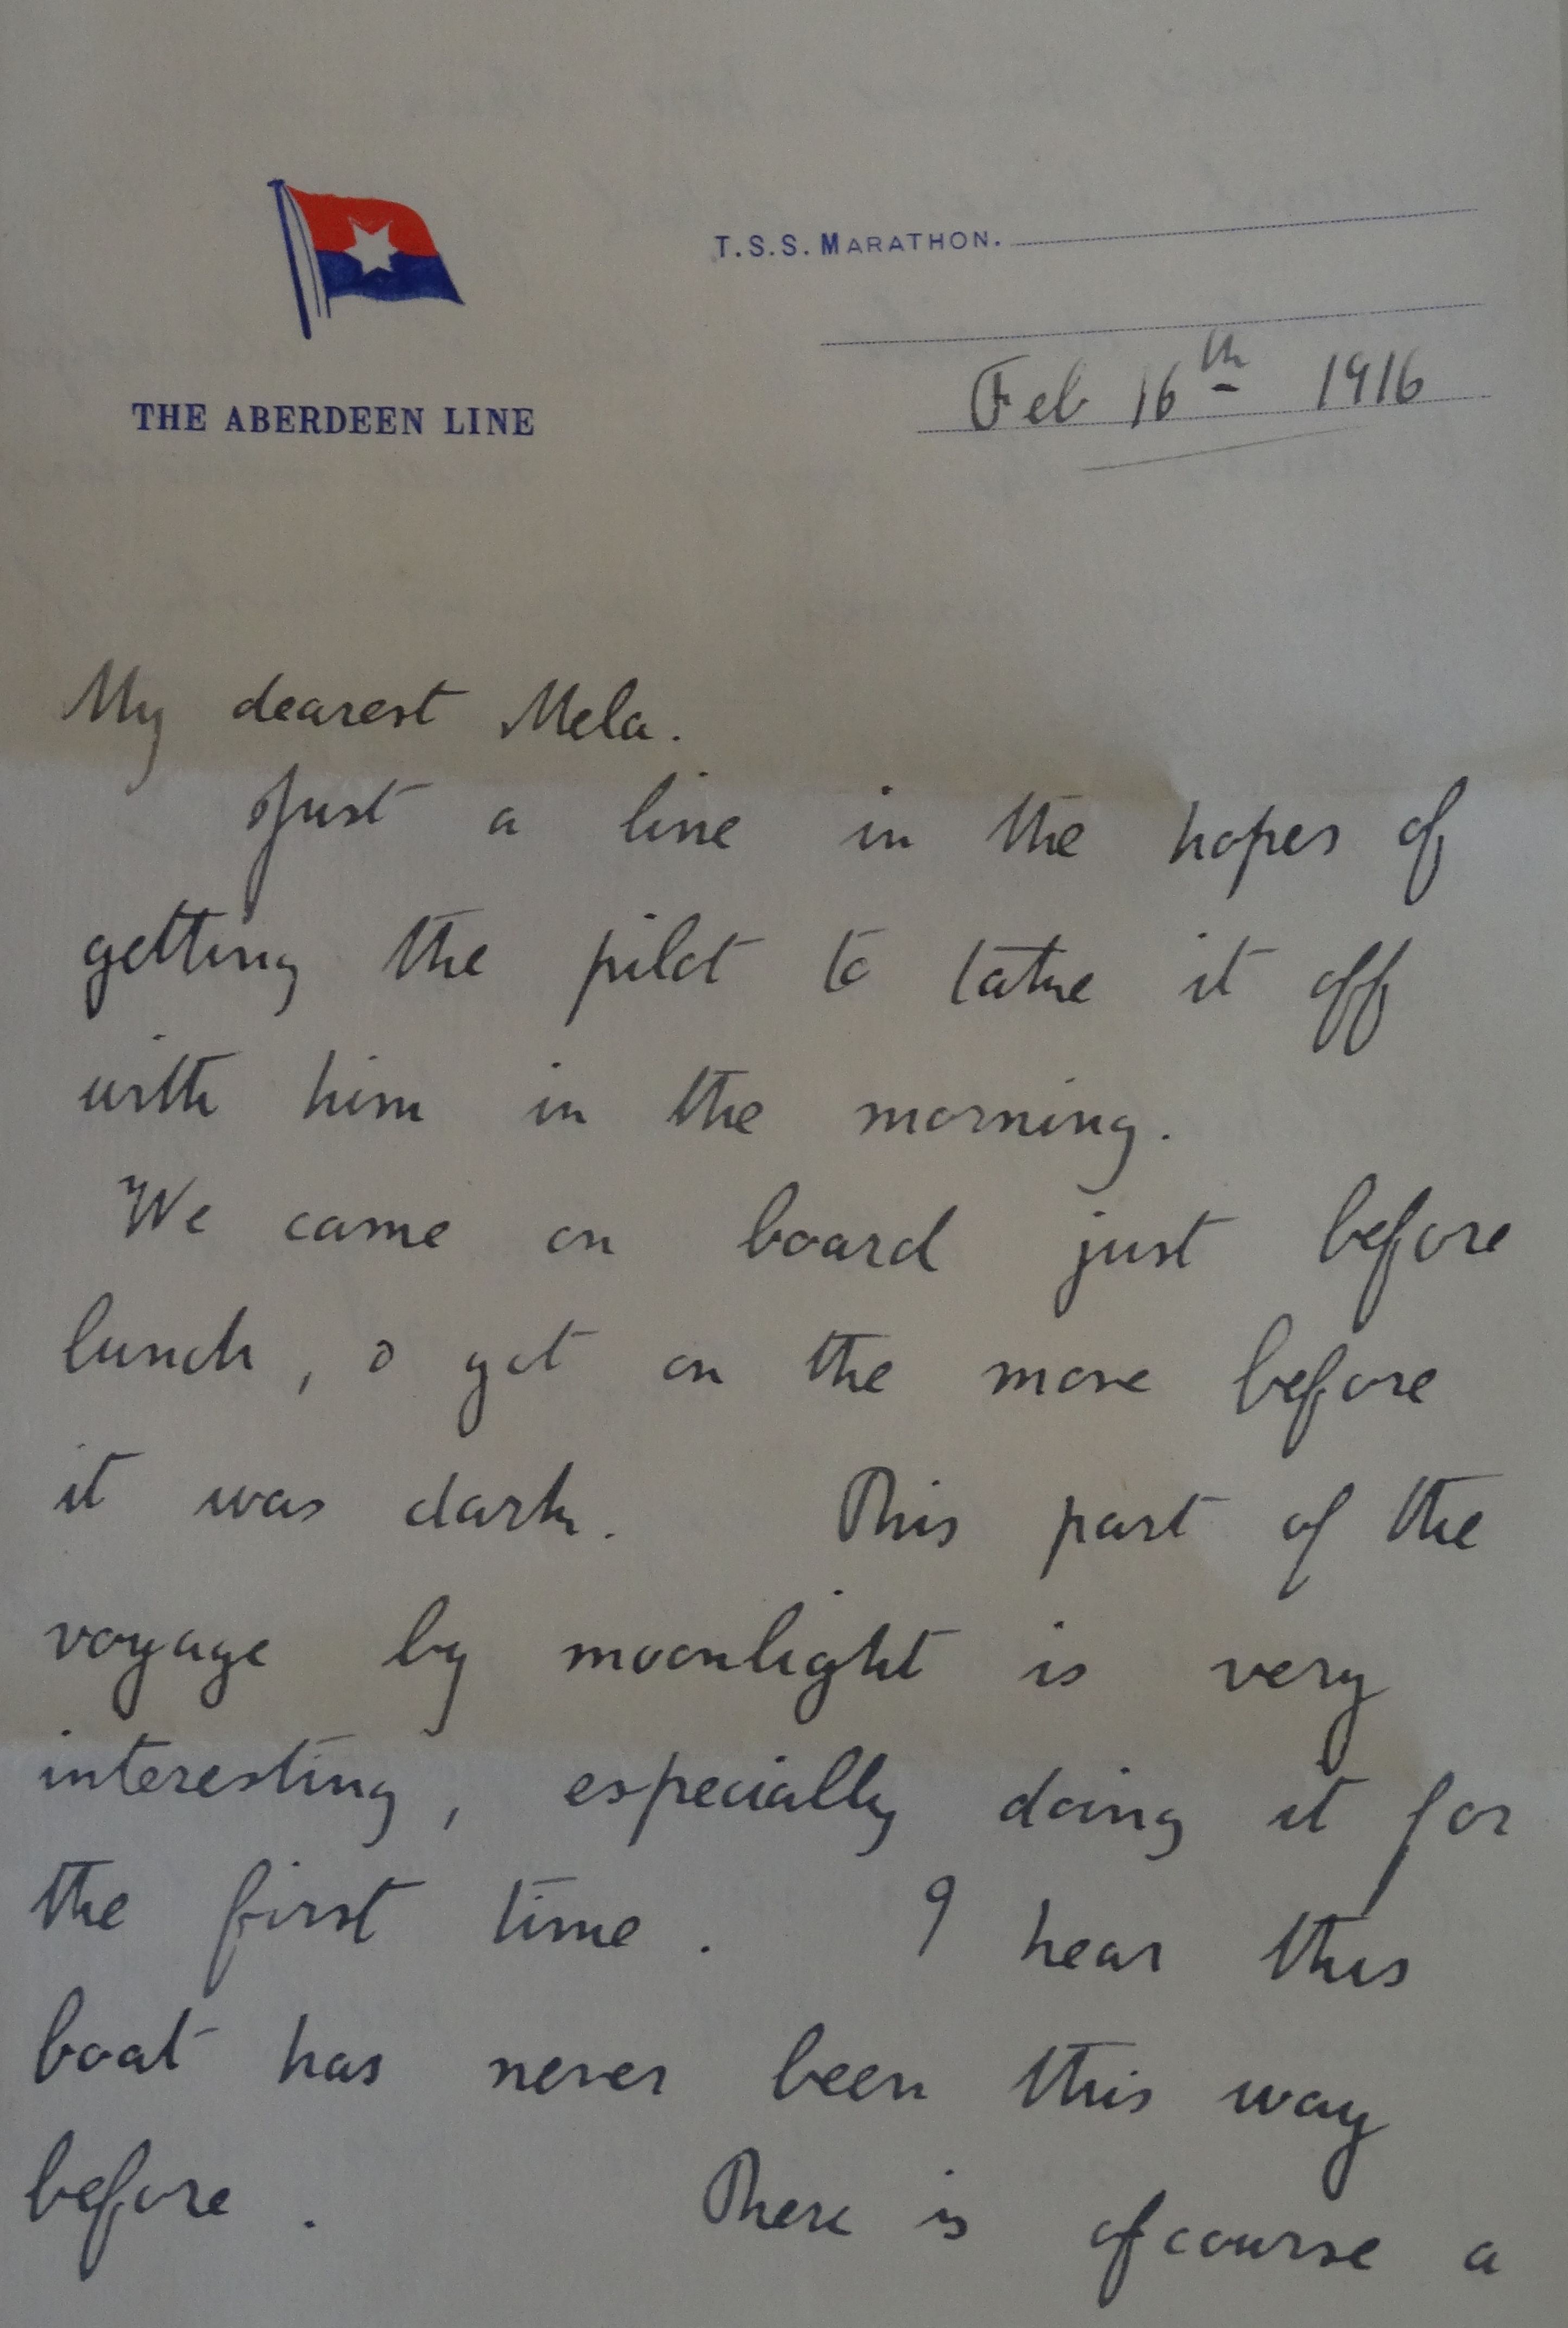 T.S.S. MARATHON.
THE ABERDEEN LINE
Feb 16th 1916
My dearest Mela.
Just a line in the hopes of
getting the pilot to take it off
with him in the morning.
We came on board just before
lunch, & got on the move before
it was dark. This part of the
voyage by moonlight is very
interesting, especially doing it for
the first time. I hear this
boat has never been this way
before. There is ofcourse a